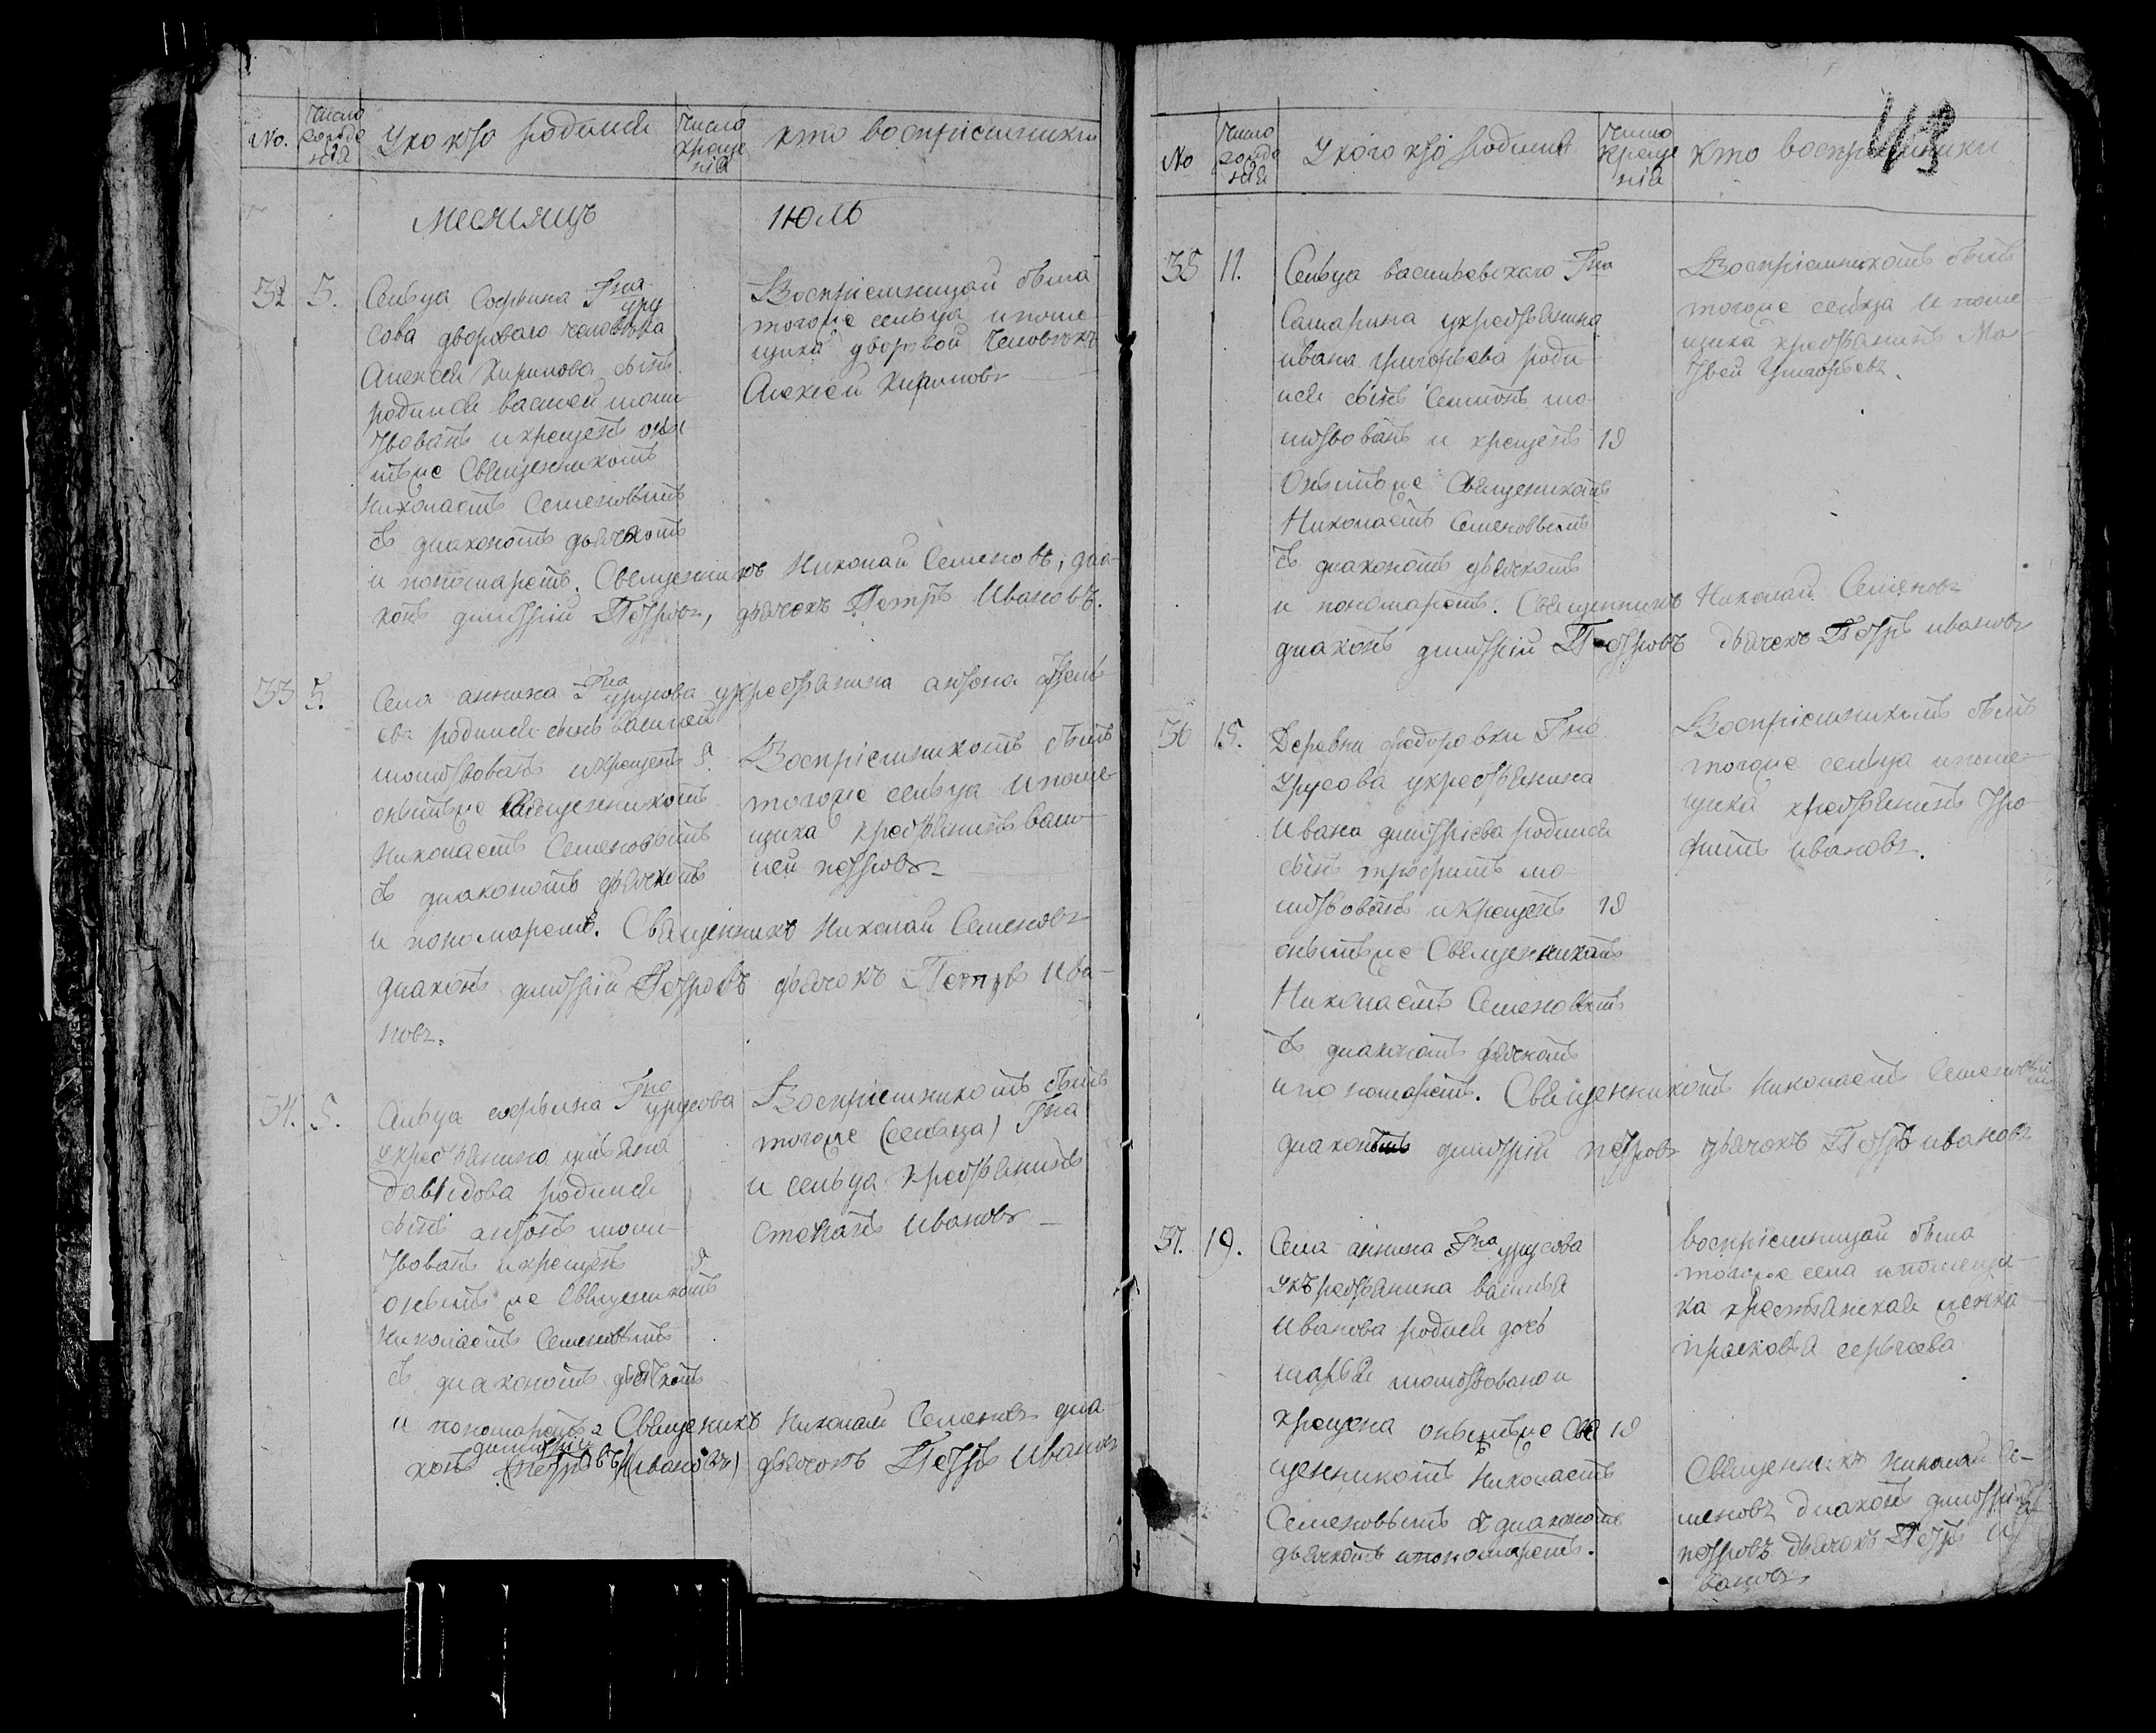 No.
Число рожде нiя
У ко кто родился
Число креще нiя
кто воспрiемники
месяяцъ
Июль
32
5.
Сельца Софьина Гна уру
сова двороваго человѣка
Алексея Кирилова сынъ
родился василей моли
твовалъ и крещенъ оны
мъ же Священникомъ
Николаемъ Семеновымъ
съ диакономъ дьячкомъ
и пономаремъ. Священникъ Николай Семеновъ, диа-
конъ димитрiй Петровъ, дьячокъ Петръ Ивановъ.
Воспрiемницай была
тогоже сельца и поме-
щика дворовой человѣкъ
Алексей Кириловъ
33
5.
Села аннина Гна урусова у крестьянина антона
евa родился сынъ василей
молитвовалъ и крещенъ 5.
онымъже Священникомъ
Николаемъ Семеновымъ
съ диакономъ дьячкомъ
Воспрiемникомъ былъ
тогоже сельца и поме-
щика крестьянинъ васи-
лей петровъ
и пономаремъ. Священникъ Николай Семеновъ
диаконъ димитрiй Петровъ дьячокъ Петръ Ива-
новъ.
34.
5.
Сельца софьина Гна урусова
у крестьянина
давыдова родился
сынъ антонъ моли-
твовалъ и крещенъ 5
онымъ же Священикомъ
николаемъ Семеновымъ
съ диакономъ дьячкомъ
Воспрiемникомъ былъ
тогоже (сельца) Гна
и сельца крестьянинъ
степанъ Ивановъ
и пономаремъ Священикъ Николай Семеновъ диа-
димитрiй
конъ (петровъ) (ивановъ) дьячокъ Петръ Ивановъ
43
No
Число рожде нiя
У кого кто родился
Число креще нiя
кто воспрiемники
35
11.
Сельца васильевскаго Гна
Самарина укрестьянина
ивана григорьева роди
лся сынъ Семионъ мо-
литвовалъ и крещенъ 18
Онымъже Священикомъ
Николаемъ Семеновымъ
съ диакономъ дьячкомъ
и пономаремъ. Священникъ Николай Семеновъ
диаконъ димитрiй Петровъ дьячекъ Петръ ивановъ
Воспрiемникомъ былъ
тогоже сельца и поме-
щика крестьянинъ Ма
твей Григорьевъ.
36
15.
Деревни федоровки Гна
Урусова укрестьянина
Ивана димитрiева родился
сынъ трофимъ мо-
литвовалъ и крещенъ 18
онымъже Священникомъ
Николаемъ Семеновымъ
съ диакономъ дьячкомъ
и пономаремъ. Священникомъ Николаемъ Семеновым
диаконъ димитрiй петровъ дьячокъ Петръ ивановъ
Воспрiемникомъ былъ
тогоже сельца и поме-
щика крестьянинъ тро-
фимъ ивановъ.
37.
19.
Села аннина Гна урусова
укъ рестьянина василья
Иванова родися дочь
марья молитвована и
крещена онымъже Свя 18
щенникомъ Николаемъ
Семеновымъ съ диакономъ
дьячкомъ и пономаремъ.
воспрiемницай была
тогоже села и помещи-
ка крестьянская женка
прасковья сергеева
Священникъ николай Се-
меновъ диаконъ димитрiй
петровъ дьячокъ Петръ И
вановъ